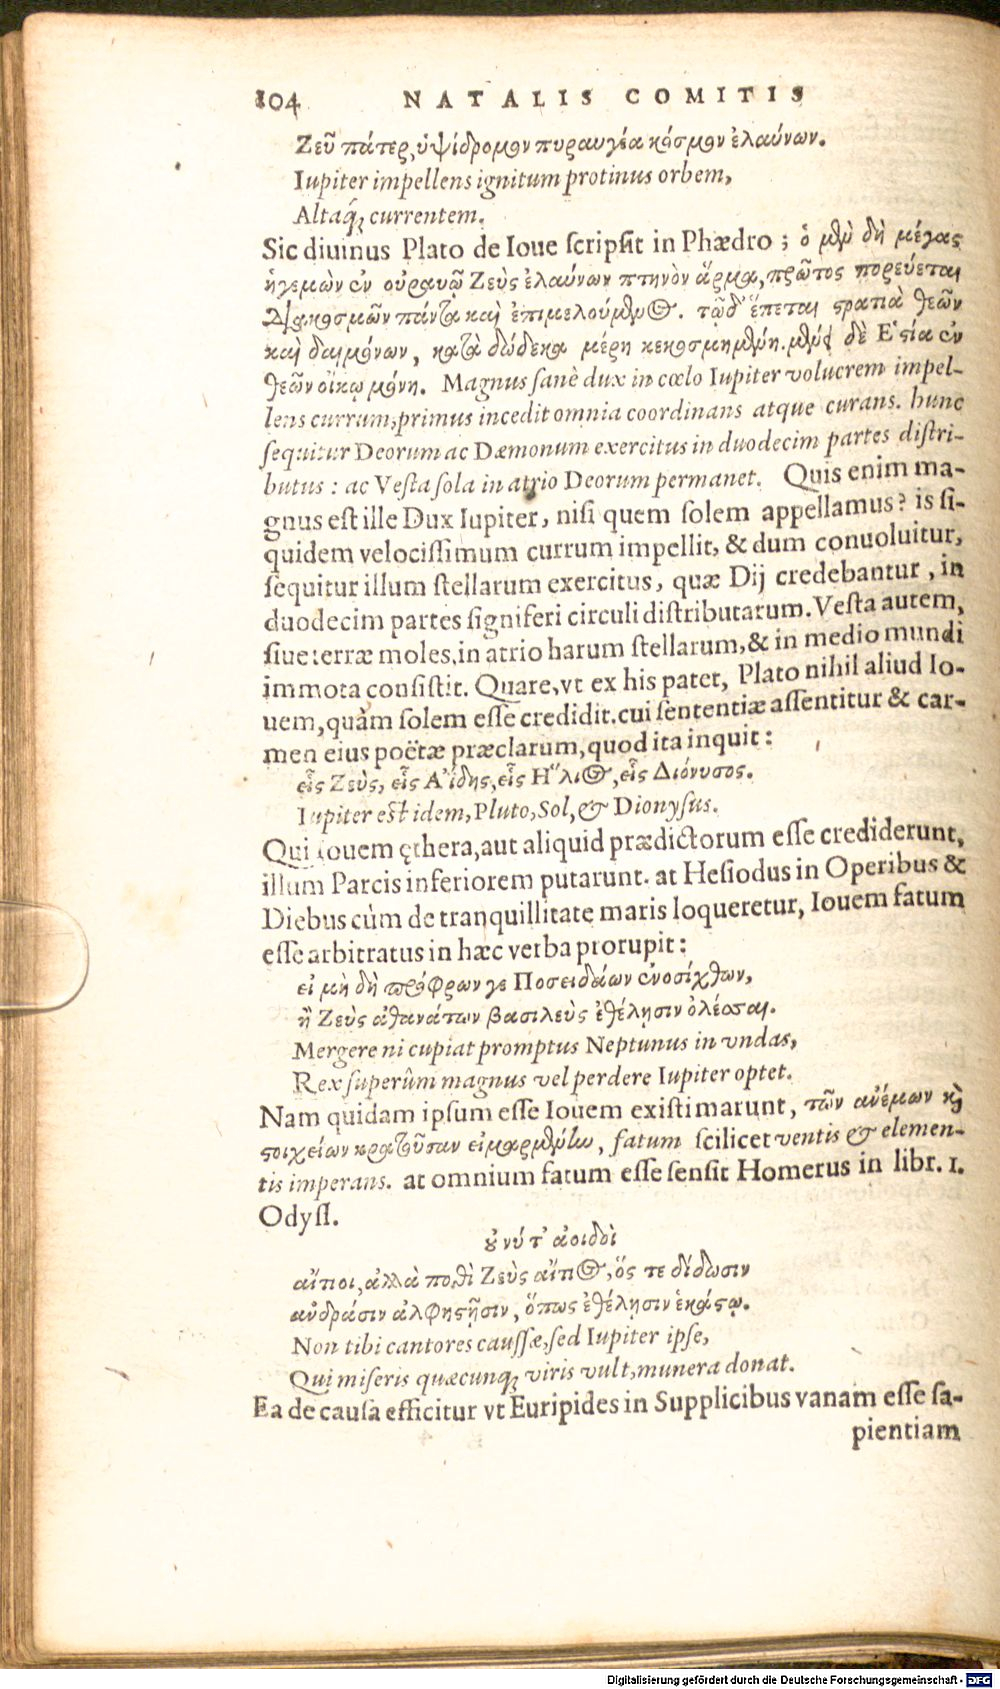 104 NATALIS COMITIS
Ζεῦ πάτερ, ὑψίδρομον πυραυγέα κόσμον ἐλαύνων.
Iupiter impellens ignitum protinus orbem,
Altaq́; currentem.
Sic diuinus Plato de Ioue scripsit in Phædro; ὁ μὲν δὴ μέγας
ἡγεμὼν ἐν οὐρανῷ Ζεὺς ἐλαύνων πτηνὸν ἅρμα, πρῶτος πορεύεται
διακοσμῶν πάντα καὶ ἐπιμελούμενος. τῷδ' ἕπεται στρατιὰ θεῶν
καὶ δαιμόνων, κατὰ δώδεκα μέρη κεκοσμημένη. μένει δὲ Ἑστία ἐν
θεῶν οἴκῳ μόνη. Magnus sanè dux in cœlo Iupiter volucrem impel-
lens currum, primus incedit omnia coordinans atque curans. hunc
sequitur Deorum ac Dæmonum exercitus in duodecim partes distri-
butus: ac Vesta sola in atrio Deorum permanet. Quis enim ma-
gnus est ille Dux Iupiter, nisi quem solem appellamus? is si-
quidem velocissimum currum impellit, & dum conuoluitur,
sequitur illum stellarum exercitus, quæ Dij credebantur, in
duodecim partes signiferi circuli distributarum. Vesta autem,
siue terræ moles, in atrio harum stellarum, & in medio mundi
immota consistit. Quare, vt ex his patet, Plato nihil aliud Io-
uem, quàm solem esse credidit. cui sententiæ assentitur & car-
men eius poëtæ præclarum, quod ita inquit:
εἷς Ζεὺς, εἷς Ἀΐδης, εἷς Ἥλιος, εἷς Διόνυσος.
Iupiter est idem, Pluto, Sol, & Dionysus.
Qui Iouem ęthera, aut aliquid prædictorum esse crediderunt,
illum Parcis inferiorem putarunt. at Hesiodus in Operibus &
Diebus cùm de tranquillitate maris loqueretur, Iouem fatum
esse arbitratus in hæc verba prorupit:
εἰ μὴ δὴ πρόφρων γε Ποσειδάων ἐνοσίχθων,
ἢ Ζεὺς ἀθανάτων βασιλεὺς ἐθέλησιν ὀλέσσαι.
Mergere ni cupiat promptus Neptunus in vndas,
Rex superûm magnus vel perdere Iupiter optet.
Nam quidam ipsum esse Iouem existimarunt, τῶν ἀνέμων καὶ
στοιχείων κρατοῦσαν εἱμαρμένην, fatum scilicet ventis & elemen-
tis imperans. at omnium fatum esse sensit Homerus in libr. 1.
Odyss.
οὔ νύ τ' ἀοιδοὶ
αἴτιοι, ἀλλὰ ποθὶ Ζεὺς αἴτιος, ὅς τε δίδωσιν
ἀνδράσιν ἀλφηστῇσιν, ὅπως ἐθέλησιν ἑκάστῳ.
Non tibi cantores caussæ, sed Iupiter ipse,
Qui miseris quæcunq; viris vult, munera donat.
Ea de causa efficitur vt Euripides in Supplicibus vanam esse sa-
pientiam
Digitalisierung gefördert durch die Deutsche Forschungsgemeinschaft - DFG